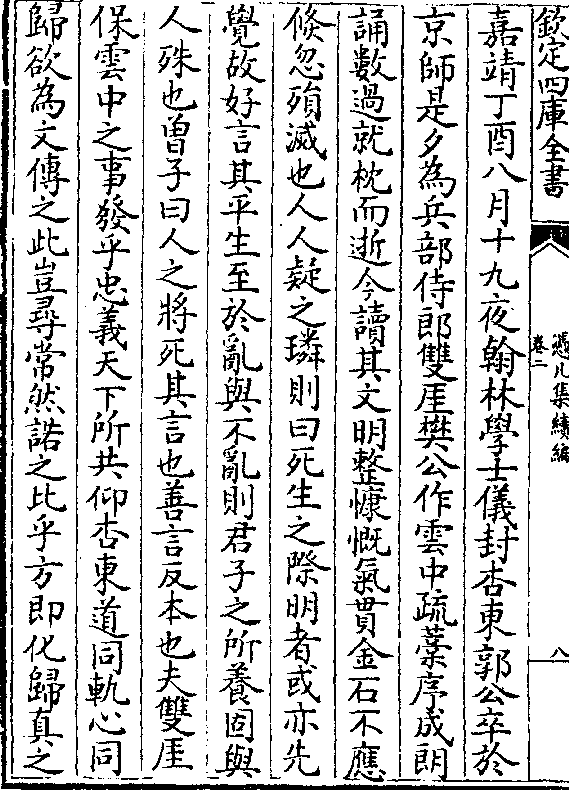 欽定四庫全書
憑几集續編
卷二
八
嘉靖丁酉八月十九夜翰林學士儀封杏東郭公卒於
京師是夕為兵部侍郎雙厓樊公作雲中疏藁序成朗
誦數過就枕而逝今讀其文明整慷慨氣貫金石不應
倐忽殞滅也人人疑之璘則曰死生之際明者或亦先
覺故好言其平生至於亂與不亂則君子之所養固與
人殊也曽子曰人之將死其言也善言反本也夫雙厓
保雲中之事發乎忠義天下所共仰杏東道同軌心同
歸欲為文傳之此豈尋常然諾之比乎方即化歸真之